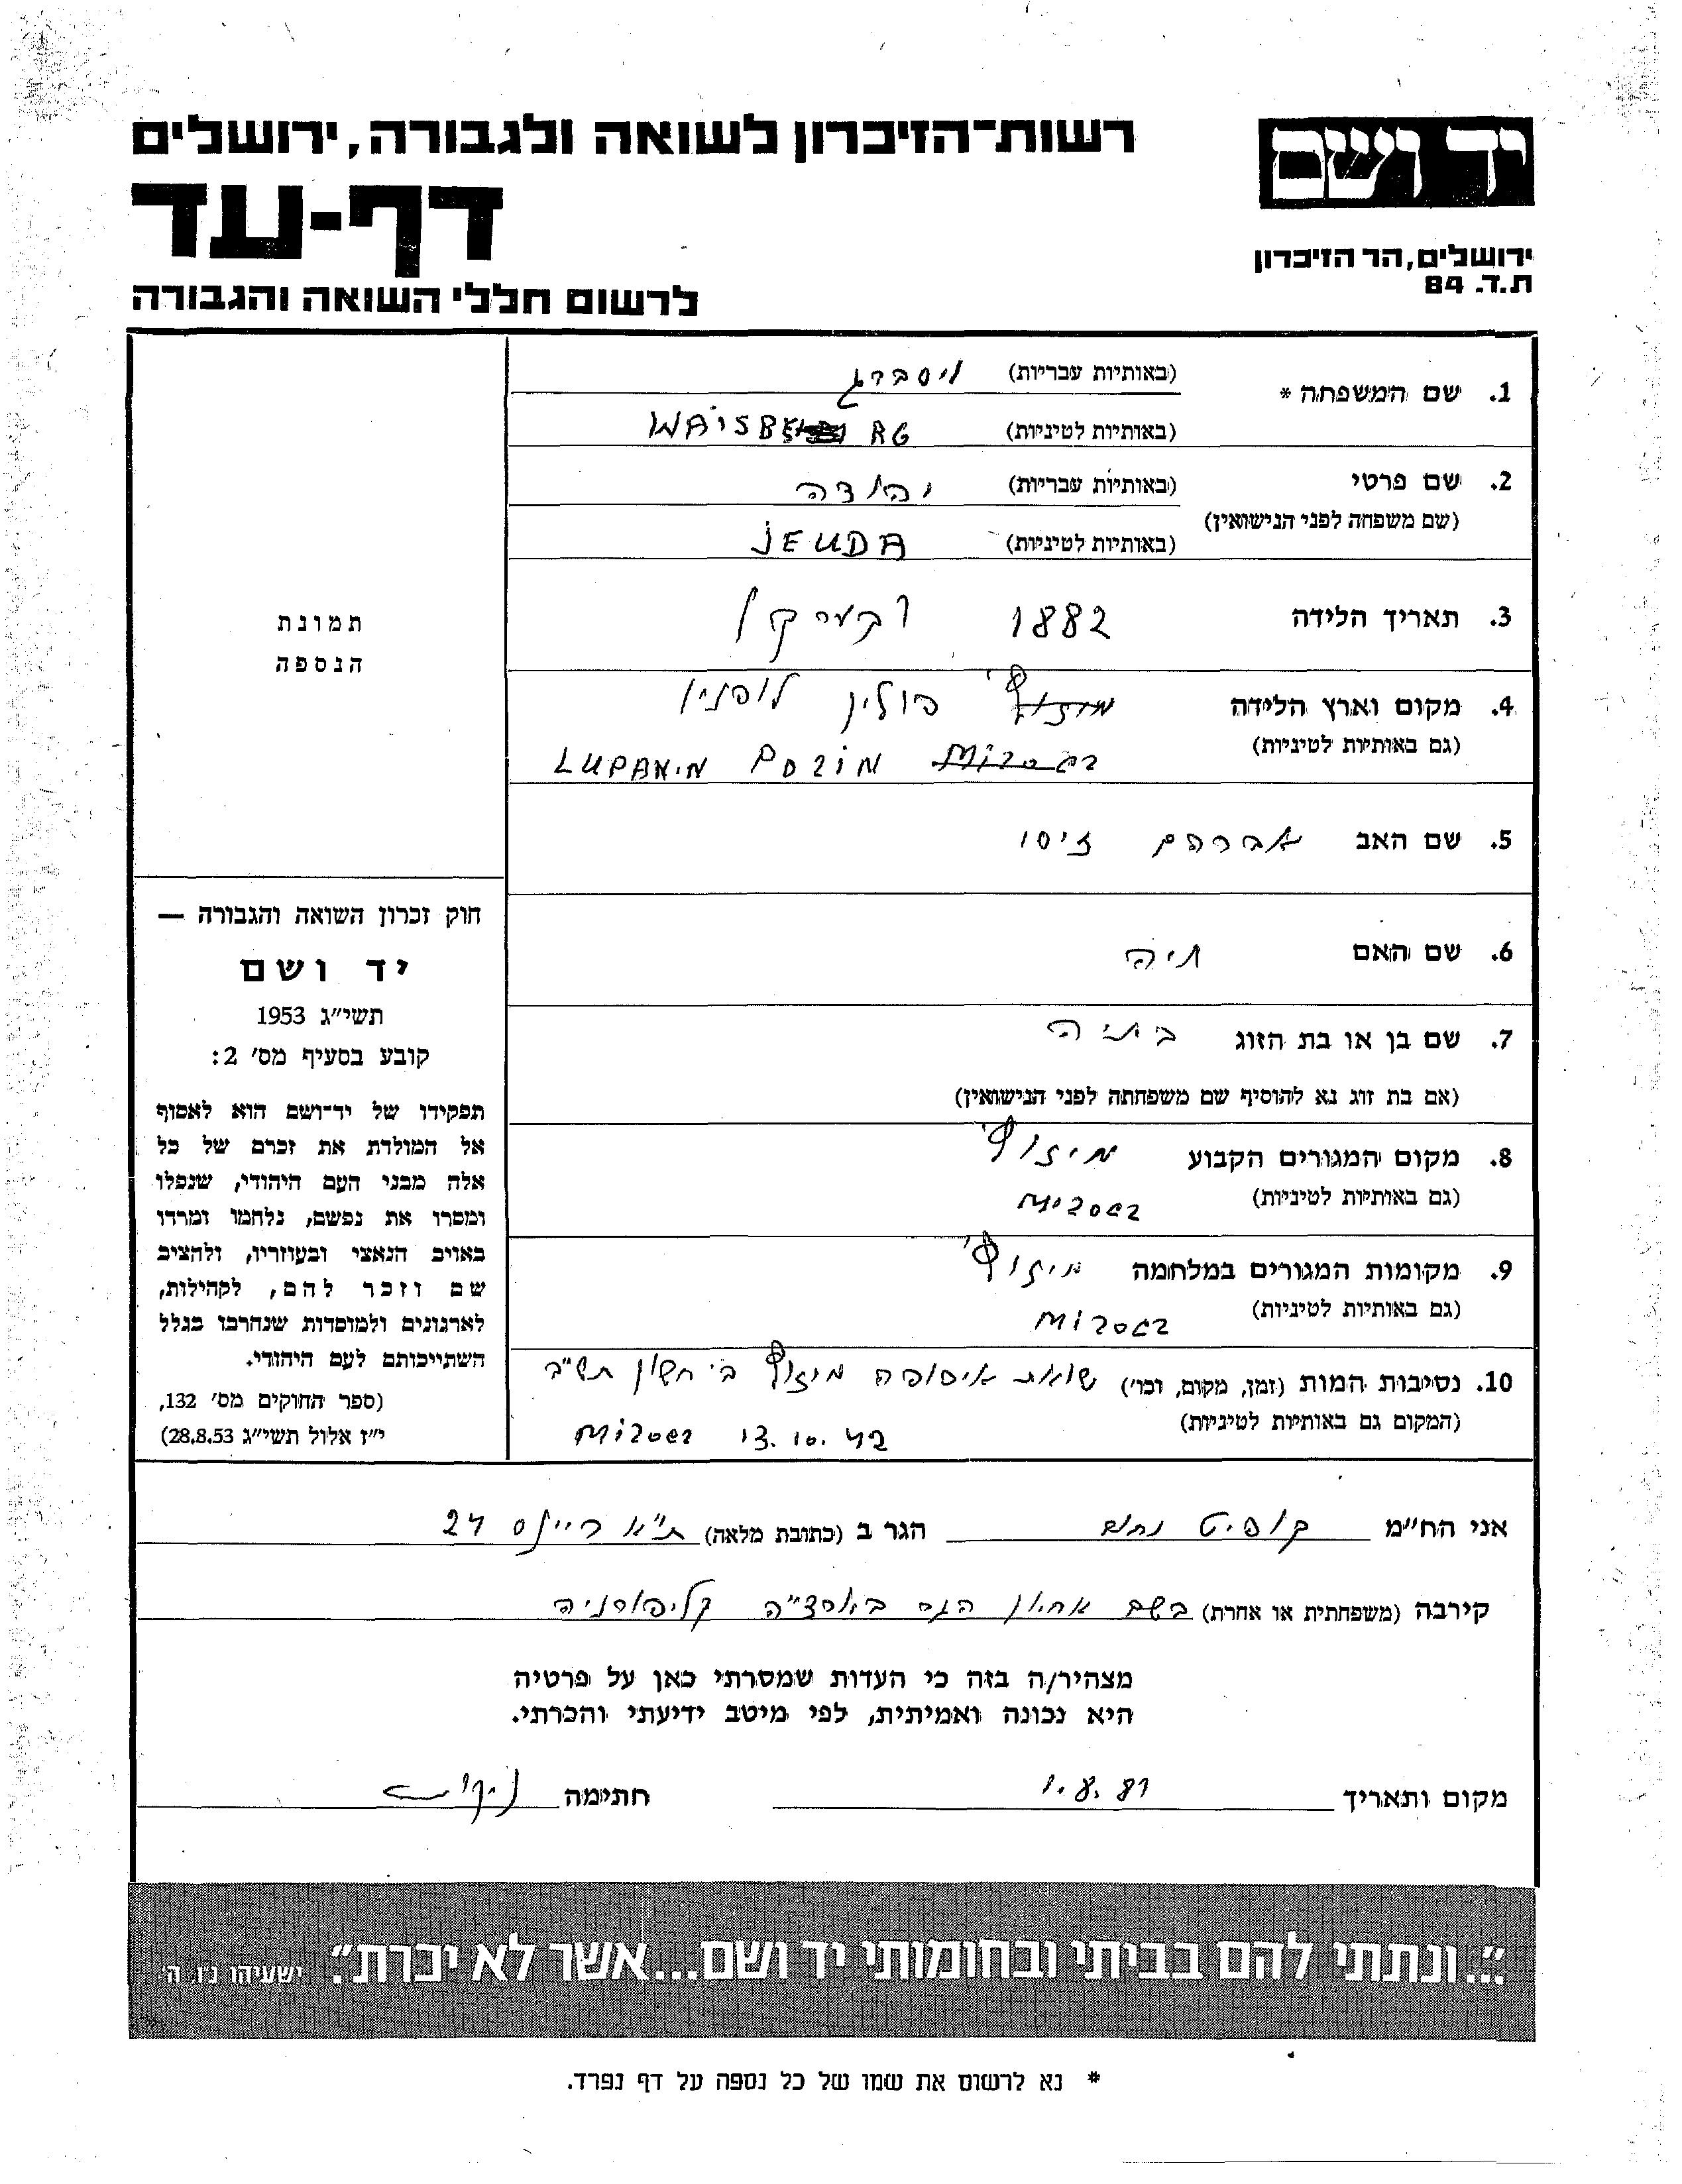 רשות־הזיכרון לשואה ולגבורה, ירושלים
יד ושם
דף-עד
ירושלים, הר הזיכרון
ת.ד. 84
לרשום חללי השואה והגבורה
1. שם המשפחה * (באותיות עבריות) ויסברג
(באותיות לטיניות) WAISBE RG
2. שם פרטי (באותיות עבריות) יהודה
(שם משפחה לפני הנישואין)
(באותיות לטיניות) JEUDA
3. תאריך הלידה 1882
4. מקום וארץ הלידה פולין לופנין
(גם באותיות לטיניות) LUPANIN
5. שם האב אברהם זיסו
6. שם האם חיה
7. שם בן או בת הזוג
(אם בת זוג נא להוסיף שם משפחתה לפני הנישואין)
8. מקום המגורים הקבוע מיזוץ'
(גם באותיות לטיניות) Mizocz
9. מקומות המגורים במלחמה מיזוץ'
(גם באותיות לטיניות) Mizocz
10. נסיבות המות (זמן, מקום, וכו') שואת איסופה מיזוץ' ב' חשון תש"ב
(המקום גם באותיות לטיניות) 13.10.42 Mizocz
תמונת
הנספה
חוק זכרון השואה והגבורה —
יד ושם
תשי"ג 1953
קובע בסעיף מס' 2:
תפקידו של יד־ושם הוא לאסוף
אל המולדת את זכרם של כל
אלה מבני העם היהודי, שנפלו
ומסרו את נפשם, נלחמו ומרדו
באויב הנאצי ובעוזריו, ולהציב
שם וזכר להם, לקהילות,
לארגונים ולמוסדות שנחרבו בגלל
השתייכותם לעם היהודי.
(ספר החוקים מס' 132,
י"ז אלול תשי"ג 28.8.53)
אני הח"מ קופיט נחום הגר ב (כתובת מלאה) ת"א ריינס 24
קירבה (משפחתית או אחרת) בשם אחיו הגר בארצה"ב קליפורניה
מצהיר/ה בזה כי העדות שמסרתי כאן על פרטיה
היא נכונה ואמיתית, לפי מיטב ידיעתי והכרתי.
מקום ותאריך 1.8.81 חתימה
"...ונתתי להם בביתי ובחומותי יד ושם...אשר לא יכרת". ישעיהו נ"ו ה'
* נא לרשום את שמו של כל נספה על דף נפרד.